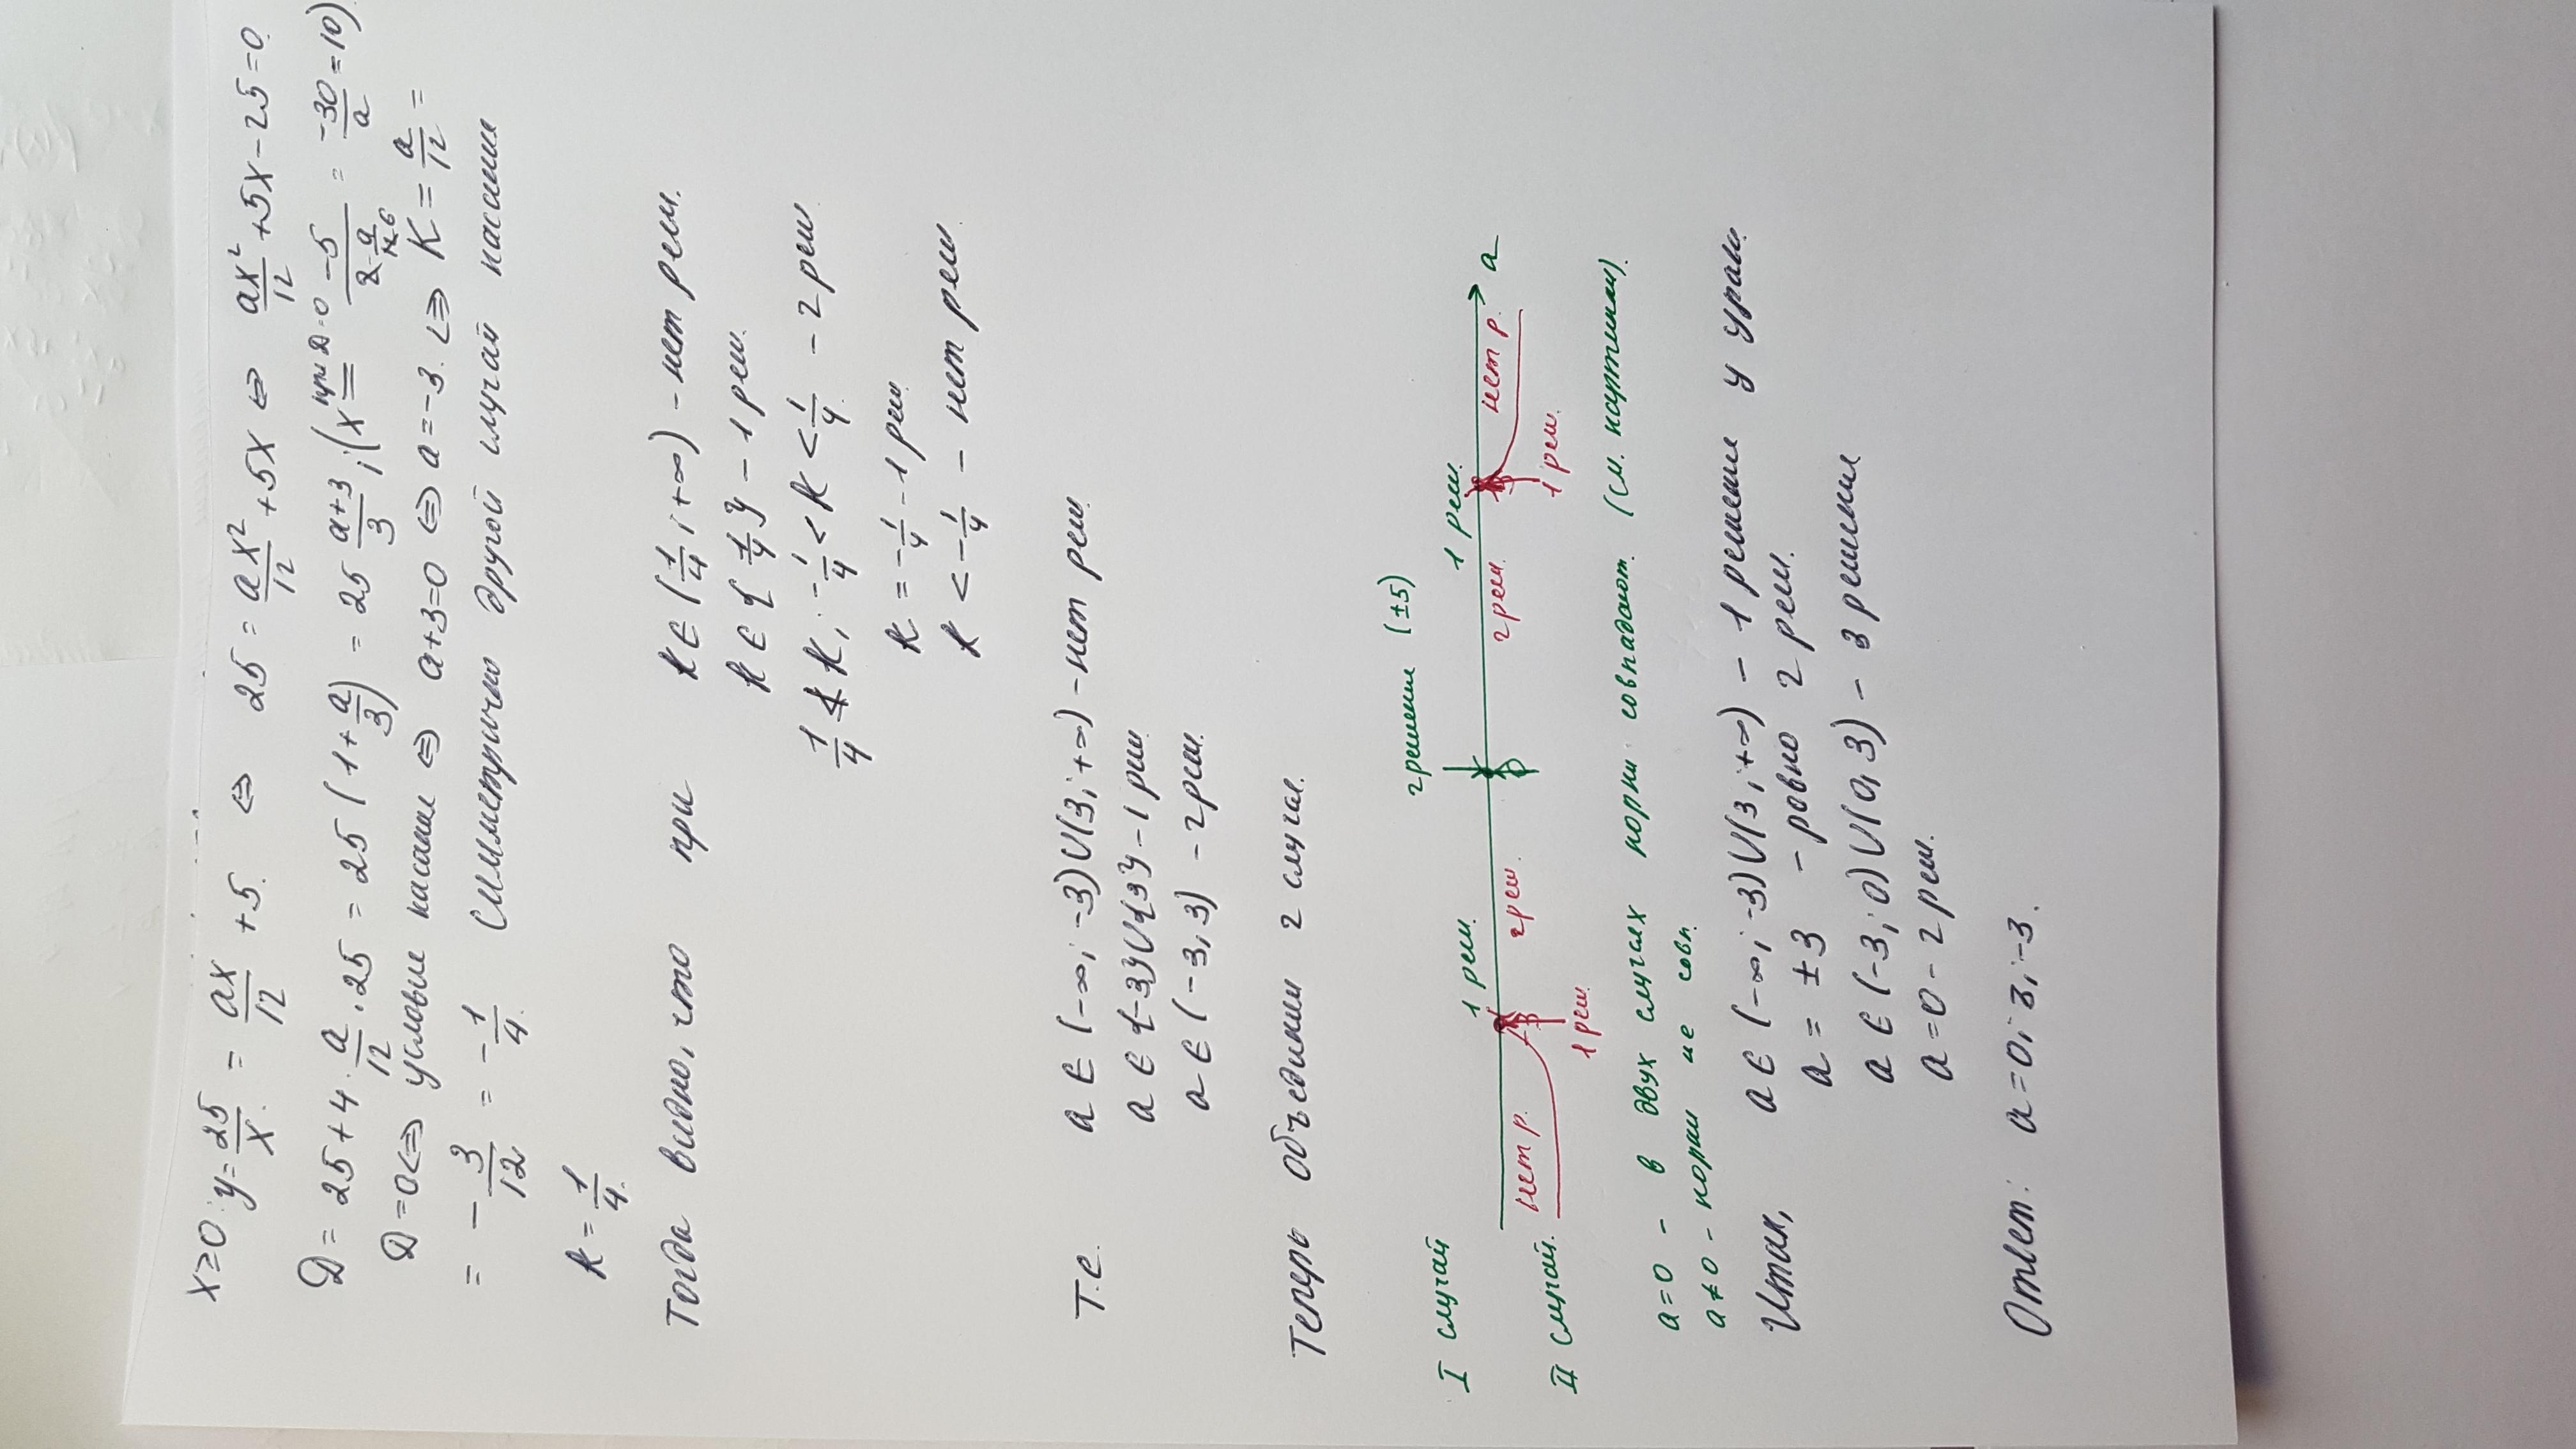 x≥0: y=25/x = ax/12 +5. ⇔ 25 = ax²/12 +5x ⇔ ax²/12 +5x-25=0
Д = 25+4·a/12·25 = 25(1+a/3) = 25 (a+3)/3; (x при Д=0 = -5/(2·a/12) = -30/a = 10)
Д=0⇔ условие касания ⇔ a+3=0 ⇔ a=-3. ⇔ K = a/12 =
= -3/12 = -1/4. Симметрично другой случай касания
k = 1/4.
Тогда видно, что при k ∈ (1/4; +∞) - нет реш.
k ∈ {1/4} - 1 реш.
k; -1/4 < k < 1/4 - 2 реш
k = -1/4 - 1 реш.
k < -1/4 - нет реш.
Т.е. a ∈ (-∞; -3)U(3; +∞) - нет реш.
a ∈ {-3}U{3} - 1 реш
a ∈ (-3; 3) - 2 реш.
Теперь объединим 2 случая.
2 решения (±5)
I случай 1 реш. 1 реш.
a
нет р. 2 реш. 2 реш. нет р.
II случай. 1 реш. 1 реш.
a=0 - в двух случаях корни совпадают. (см. картинки)
a≠0 - корни не совп.
Итак, a ∈ (-∞; -3)U(3; +∞) - 1 решение у уравн.
a = ±3 - ровно 2 реш.
a ∈ (-3; 0)U(0; 3) - 3 решения
a=0 - 2 реш.
Ответ: a=0; 3; -3.